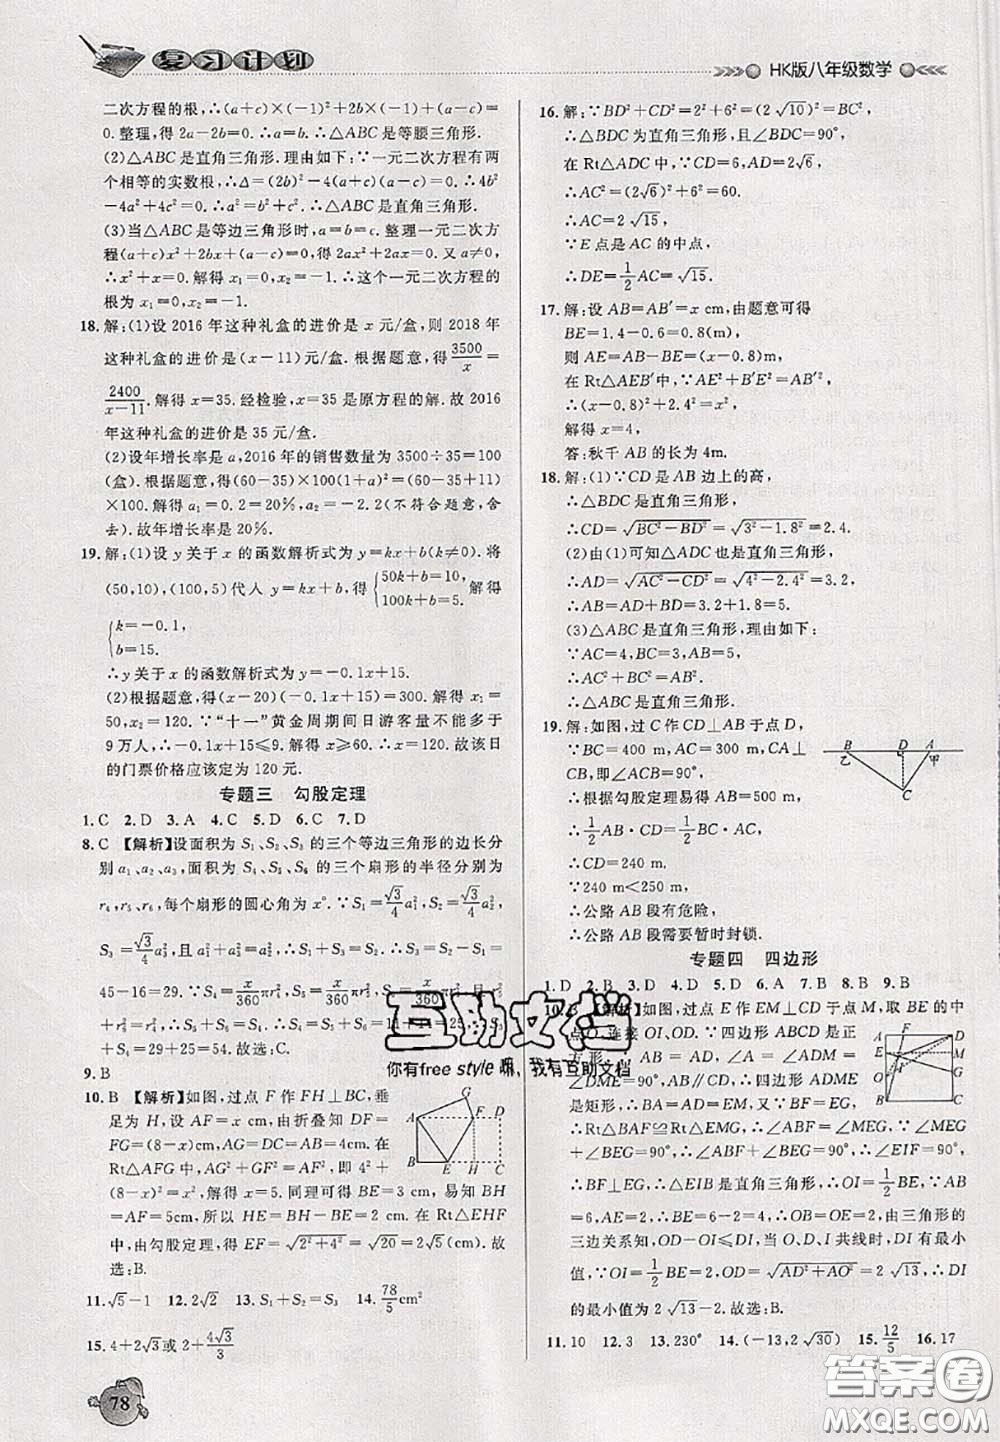 复习计划
HK版八年级数学
二次方程的根,∴(a+c)×(-1)²+2b×(-1)+(a-c)=
0.整理,得2a-2b=0.∴a=b.∴△ABC是等腰三角形.
(2)△ABC是直角三角形.理由如下:∵一元二次方程有两
个相等的实数根,∴Δ=(2b)²-4(a+c)(a-c)=0.∴4b²
-4a²+4c²=0.∴a²=b²+c².∴△ABC是直角三角形.
(3)当△ABC是等边三角形时,a=b=c.整理一元二次方
程(a+c)x²+2bx+(a-c)=0,得2ax²+2ax=0.又a≠0,
∴x²+x=0.解得x₁=0,x₂=-1.∴这个一元二次方程的
根为x₁=0,x₂=-1.
18.解:(1)设2016年这种礼盒的进价是x元/盒,则2018年
这种礼盒的进价是(x-11)元/盒.根据题意,得3500/x=
2400/(x-11).解得x=35.经检验,x=35是原方程的解.故2016
年这种礼盒的进价是35元/盒.
(2)设年增长率是a,2016年的销售数量为3500÷35=100
(盒).根据题意,得(60-35)×100(1+a)²=(60-35+11)
×100.解得a₁=0.2=20%,a₂=-2.2(不符合题意,舍
去).故年增长率是20%.
19.解:(1)设y关于x的函数解析式为y=kx+b(k≠0).将
(50,10),(100,5)代入y=kx+b,得{50k+b=10, 100k+b=5.
{k=-0.1, b=15.
∴y关于x的函数解析式为y=-0.1x+15.
(2)根据题意,得(x-20)(-0.1x+15)=300.解得x₁=
50,x₂=120.∵“十一”黄金周期间日游客量不能多于
9万人,∴-0.1x+15≤9.解得x≥60.∴x=120.故该日
的门票价格应该定为120元.
专题三 勾股定理
1.C 2.D 3.A 4.C 5.D 6.C 7.D
8.C 【解析】设面积为S₁、S₂、S₃的三个等边三角形的边长分
别a₁、a₂、a₃,面积为S₄、S₅、S₆的三个扇形的半径分别为
r₄,r₅,r₆,每个扇形的圆心角为x°.∵S₁=√3/4a₁²,S₂=√3/4a₂²,
S₃=√3/4a₃²,a₁²+a₃²=a₂²,∴S₁+S₃=S₂.∴S₃=S₂-S₁=
45-16=29.∵S₄=x/360πr₄²,S₅=x/360πr₅²,S₆=x/360πr₆²,且r₄²
+r₆²=r₅²,∴S₄+S₆=S₅.∴S₅=S₄+S₆=11+14=25.∴S₃
+S₅=29+25=54.故选:C.
9.B
10.B 【解析】如图,过点F作FH⊥BC,垂
足为H,设AF=x(cm),由折叠知DF=
FG=(8-x)cm,AG=DC=AB=4cm.在
Rt△AFG中,AG²+GF²=AF²,即4²+
(8-x)²=x²,解得x=5.同理可得BE=3 cm,易知BH
=AF=5cm,所以HE=BH-BE=2(cm).在Rt△EHF
中,由勾股定理,得EF=√(2²+4²)=√20=2√5(cm).故
选:B.
G
A F D
B E H C
11.√5-1 12.2√2 13.S₁+S₂=S₃ 14.78/5cm²
15.4+2√3或2+4√3/3
78
16.解:∵BD²+CD²=2²+6²=(2√10)²=BC²,
∴△BDC为直角三角形,且∠BDC=90°,
在Rt△ADC中,∵CD=6,AD=2√6,
∴AC²=(2√6)²+6²=60.
∴AC=2√15,
∵E点是AC的中点,
∴DE=1/2AC=√15.
17.解:设AB=AB′=x cm,由题意可得
BE=1.4-0.6=0.8(m),
则AE=AB-BE=(x-0.8)m.
在Rt△AEB′中,∵AE²+B′E²=AB′²,
∴(x-0.8)²+2.4²=x².
解得x=4,
答:秋千AB的长为4m.
18.解:(1)∵CD是AB边上的高,
∴△BDC是直角三角形,
∴CD=√(BC²-BD²)=√(3²-1.8²)=2.4.
(2)由(1)可知△ADC也是直角三角形,
∴AD=√(AC²-CD²)=√(4²-2.4²)=3.2.
∴AB=AD+BD=3.2+1.8=5.
(3)△ABC是直角三角形,理由如下:
∵AC=4,BC=3,AB=5,
∴AC²+BC²=AB².
∴△ABC是直角三角形.
19.解:如图,过C作CD⊥AB于点D,
∵BC=400 m,AC=300 m,CA⊥
CB,即∠ACB=90°,
∴根据勾股定理易得AB=500 m,
∴1/2AB·CD=1/2BC·AC,
∴CD=240 m.
∵240 m<250 m,
∴公路AB段有危险,
∴公路AB段需要暂时封锁.
B D A
乙 甲
C
专题四 四边形
1.D 2.B 3.D 4.D 5.A 6.A 7.B 8.B 9.B
10.B 【解析】如图,过点E作EM⊥CD于点M,取BE的中
点O,连接OI、OD.∵四边形ABCD是正
方形,
∠DME=90°,∴四边形ADME
是矩形,∴BA=AD=EM,∵BF=EG,
∴Rt△BAF≌Rt△EMG,∴∠ABF=∠MEG,∵∠MEG
+∠BEG=90°,∴∠ABF+∠BEG=90°,∴∠EIF=90°,
∴BF⊥EG,∴△EIB是直角三角形,∴OI=1/2BE,∵AB
=6,AE=2,∴BE=6-2=4,∴OB=OE=2,由三角形的
三边关系知,OD-OI≤DI,∴当O、D、I共线时,DI有最小
值,∵OI=1/2BE=2,∴OD=√(AD²+AO²)=2√13,∴DI
的最小值为2√13-2.故选:B.
11.10 12.3 13.230° 14.(-13,2√30) 15.12/5 16.17
互助文档
你有free style嘛,我有互助文档
答案圈
MXQE.COM